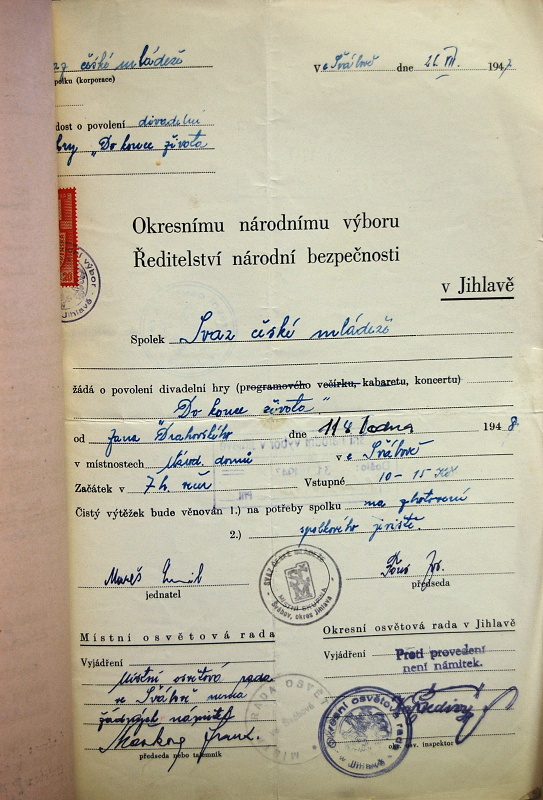 az české mládeže
V e Šrábově dne 21. XII. 1947
polku (korporace)
dost o povolení divadelní
hry „Do konce života
Okresnímu národnímu výboru
Ředitelství národní bezpečnosti
v Jihlavě
Spolek Svaz české mládeže
žádá o povolení divadelní hry (programového večírku, kabaretu, koncertu)
„Do konce života"
od Jana Drahovského dne 11 ledna 1948.
v místnostech Národ. domů v e Šrábově
Začátek v 7 h. več Vstupné 10-15 Kč
Čistý výtěžek bude věnován 1.) na potřeby spolku na zhotovení
2.) spolkového jeviště.
Mareš
jednatel
předseda
SVAZ ČESKÉ MLÁDEŽE
MÍSTNÍ SKUPINA
okres Jihlava
Místní osvětová rada
Okresní osvětová rada v Jihlavě
Vyjádření
Místní osvětová rada
ve Šrábově nemá
žádných námitek
předseda nebo tajemník
Vyjádření
Proti provedení
není námitek.
Okresní osvětová rada
v Jihlavě
okr. osv. inspektor